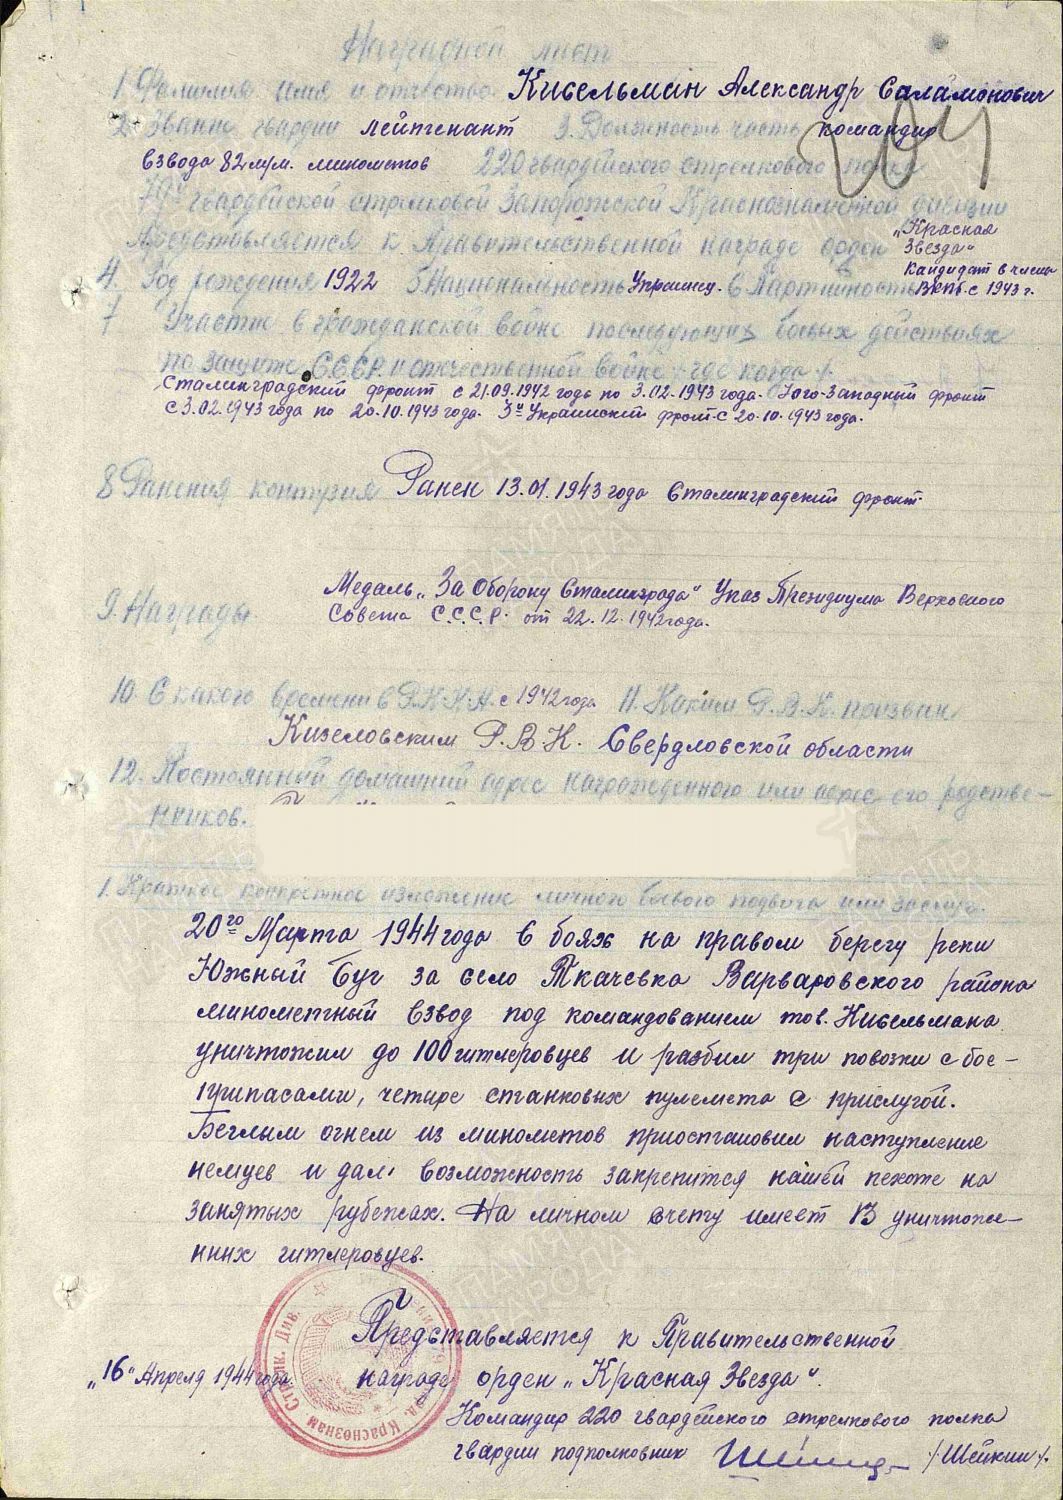 Наградной лист
1. Фамилия имя и отчество Кисельман Александр Саламонович
2. Звание гвардии лейтенант 3. Должность часть командир
взвода 82 м/м. минометов 220 гвардейского стрелкового полка
79й гвардейской стрелковой Запорожской Краснознаменной дивизии
Представляется к Правительственной награде орден „Красная
Звезда“
4. Год рождения 1922 5 Национальность Украинец. 6 Партийность кандидат в члены
ВКПб с 1943 г.
7 Участие в гражданской войне последующих боевых действиях
по защите С.С.С.Р. и отечественной войне /где когда/.
Сталинградский фронт с 21.09.1942 года по 3.02.1943 года. Юго-Западный фронт
с 3.02.1943 года по 20.10.1943 года. 3й Украинский фронт с 20.10.1943 года.
8 Ранения контузия Ранен 13.01.1943 года Сталинградский фронт
9. Награды Медаль „За Оборону Сталинграда“ Указ Президиума Верховного
Совета С.С.С.Р. от 22.12.1942 года.
10. С какого времени в Р.К.К.А. с 1942 года 11. Каким Р.В.К. призван
Кизеловским Р.В.К. Свердловской области
12. Постоянный домашний адрес награжденного или адрес его родстве-
нников.
1. Краткое конкретное изложение личного боевого подвига или заслуг.
20го Марта 1944 года в боях на правом берегу реки
Южный Буг за село Ткачевка Варваровского района
минометный взвод под командованием тов. Кисельмана
уничтожил до 100 гитлеровцев и разбил три повозки с бое-
припасами, четыре станковых пулемета с прислугой.
Беглым огнем из минометов приостановил наступление
немцев и дал возможность закрепится нашей пехоте на
занятых рубежах. На личном счету имеет 13 уничтоже-
нних гитлеровцев.
Представляется к Правительственной
„16“ Апреля 1944 года. награде орден „Красная Звезда“.
Командир 220 гвардейского стрелкового полка
гвардии подполковник /Шейкин/.
204
Стрелк. Див.
Краснознам
ПАМЯТЬ
НАРОДА